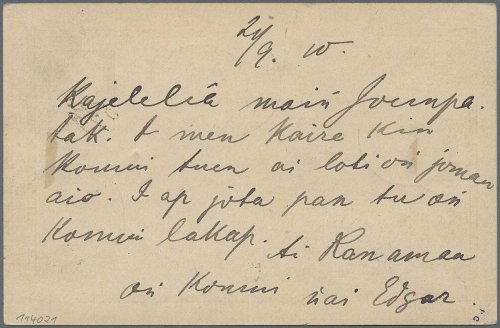 24/9. 10.
Kajelelia main Joumpa.
tak. I men Kaire Kin
Komui tuen ai loti on joman
aio. I ap jota pan tu on
Komui lakap.
Ai Ranamaa
on Komui nai Edgar.
114021